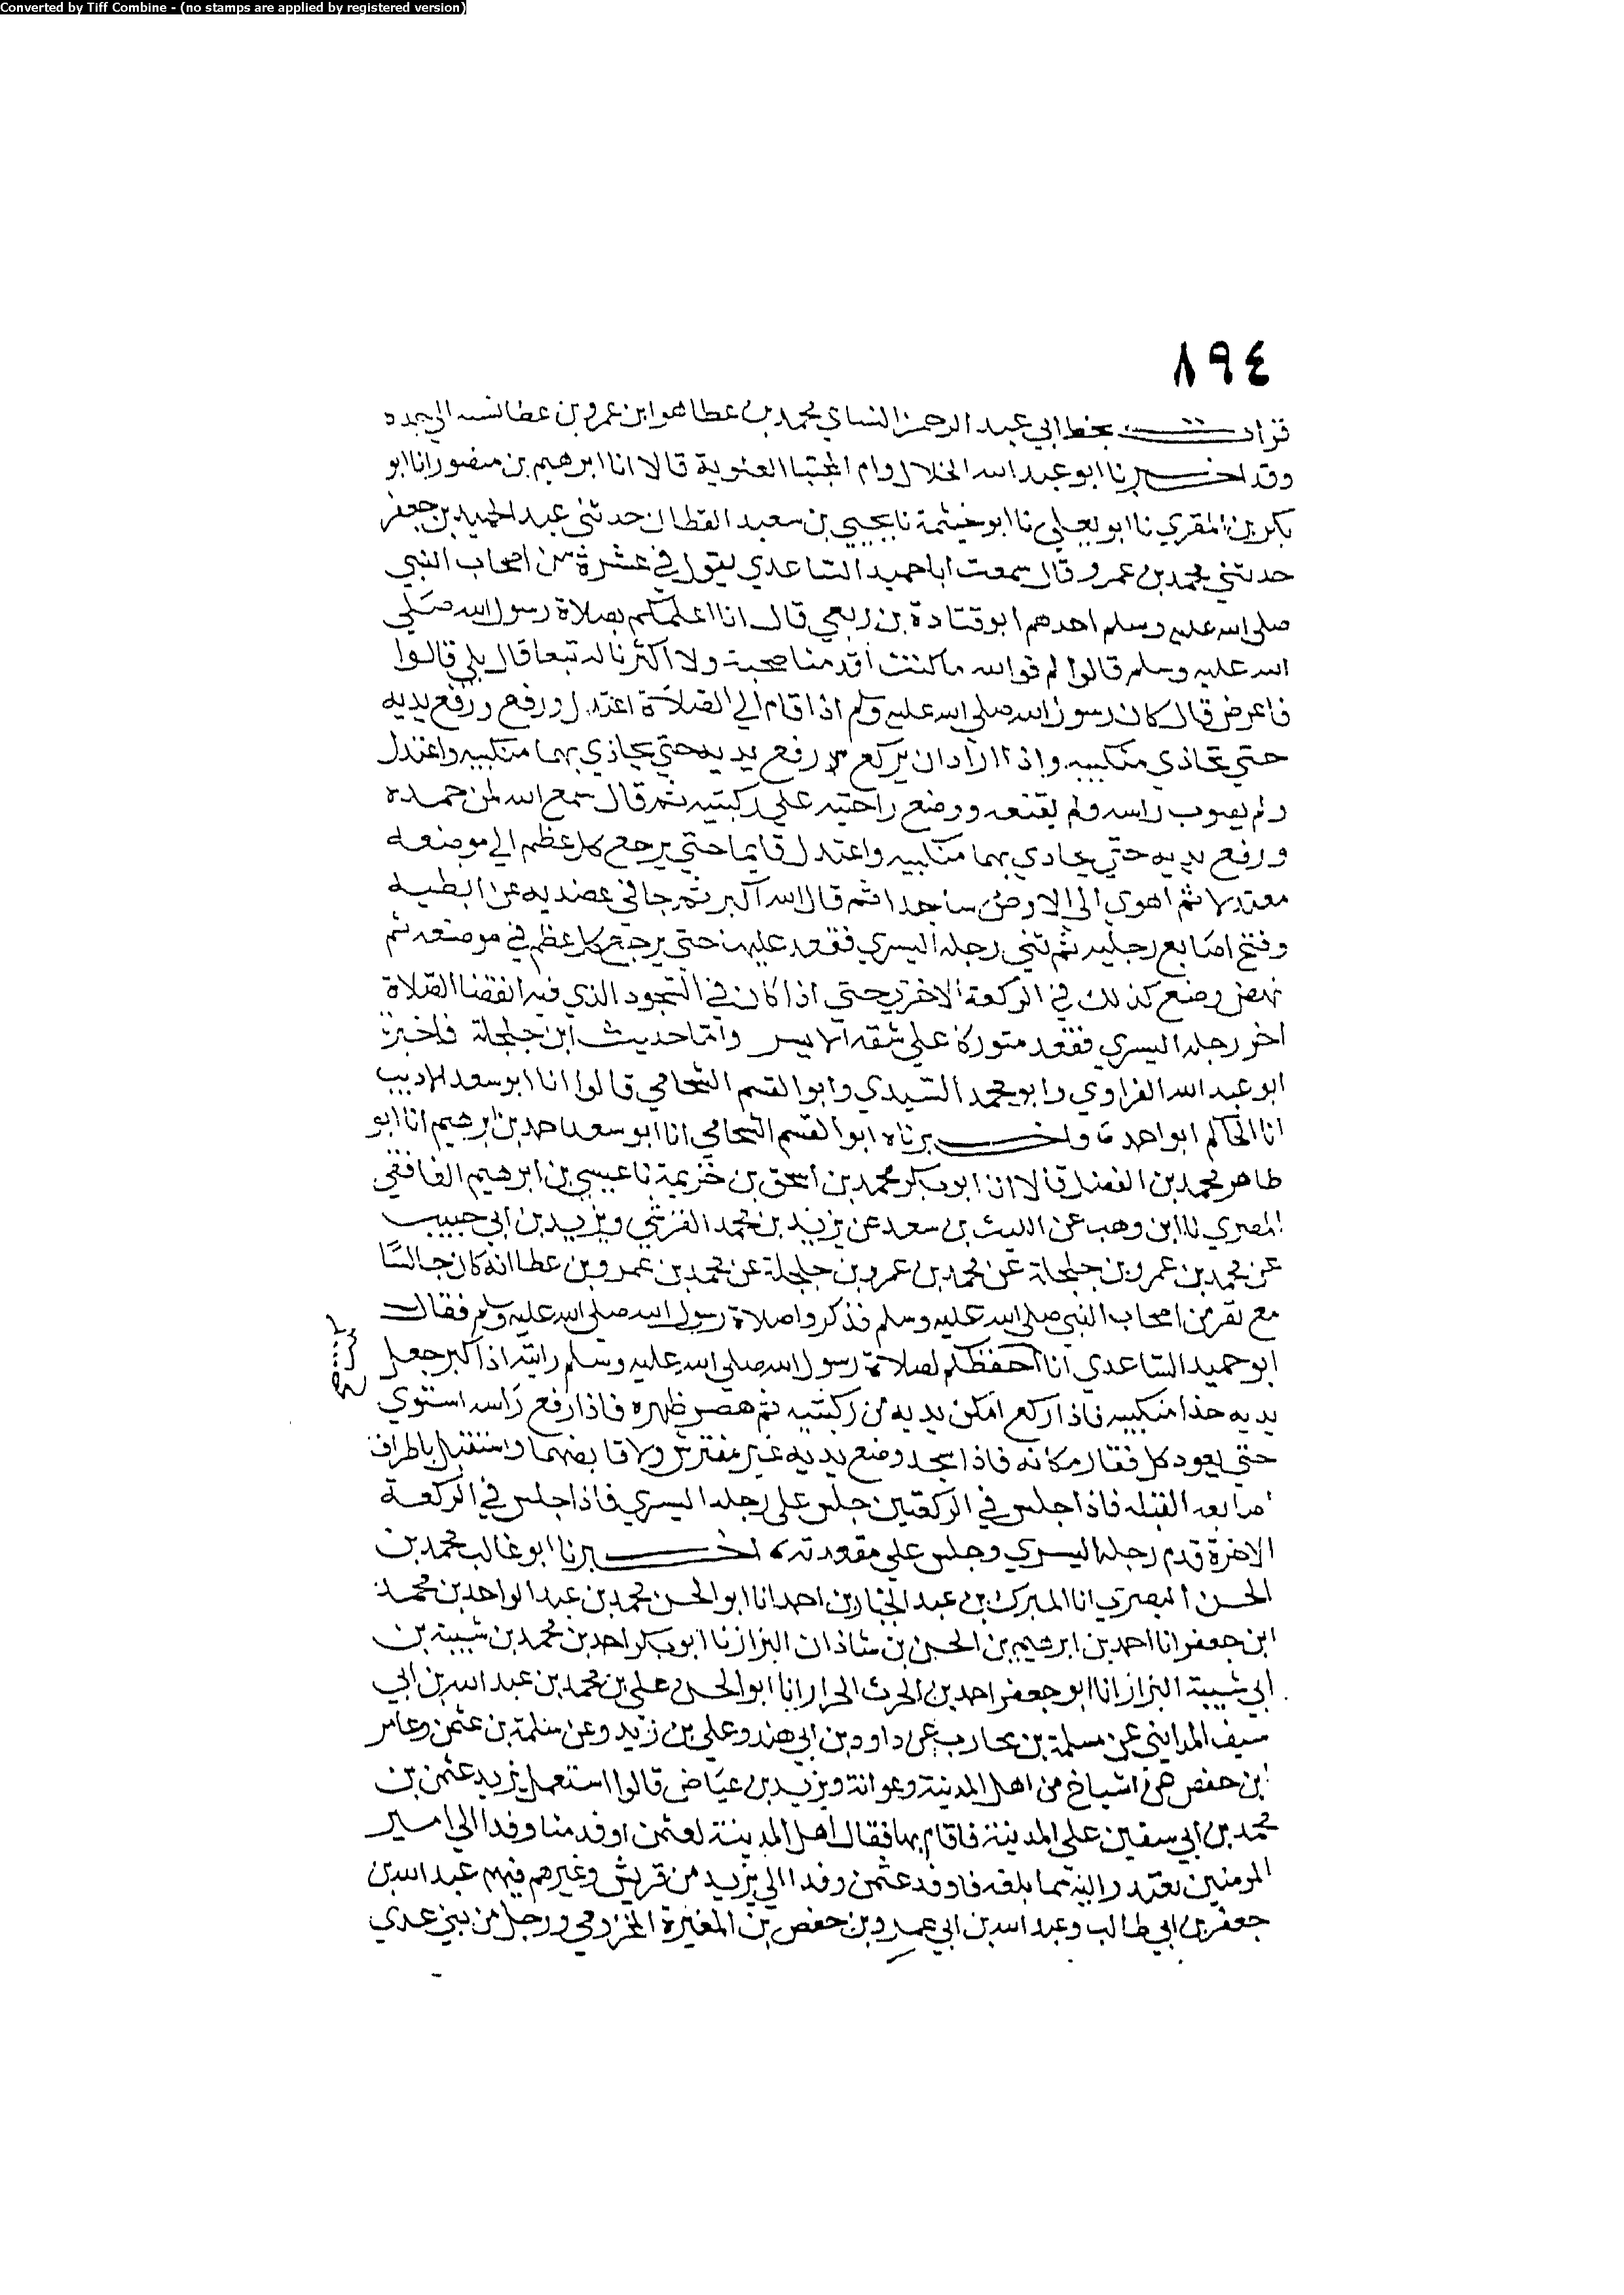 Converted by Tiff Combine - (no stamps are applied by registered version)
٨٩٤
قرات بخط ابي عبد الرحمن النساي محمد بن عطا هو ابن عمرو بن عطا نسبه الى جده
وقد اخبرنا ابو عبد الله الخلال وام المجتبا العلوية قالا انا ابرهيم بن منصور انا ابو
بكر بن المقري نا ابو يعلي نا ابو خيثمة نا يحيى بن سعيد القطان حدثني عبد الحميد بن جعفر
حدثني محمد بن عمرو قال سمعت ابا حميد الساعدي يقول في عشرة من اصحاب النبي
صلى الله عليه وسلم احدهم ابو قتادة بن ربعي قال انا اعلمكم بصلاة رسول الله صلي
الله عليه وسلم قالوا لم فوالله ما كنت اقدمنا صحبة ولا اكثرنا له تبعا قال بلي قالوا
فاعرض قال كان رسول الله صلي الله عليه وسلم اذا قام الي الصلاة اعتدل ورفع ورفع يديه
حتي تحاذي منكبيه واذا اراد ان يركع رفع يديه حتي يحاذي بهما منكبيه واعتدل
ولم يصوب راسه ولم يقنعه ووضع راحتيه علي ركبتيه ثم قال سمع الله لمن حمده
ورفع يديه حتي يحاذي بهما منكبيه واعتدل قايما حتي يرجع كل عظم الي موضعه
معتدلا ثم اهوي الى الارض ساجدا ثم قال الله اكبر ثم جافي عضديه عن ابطيه
وفتح اصابع رجليه ثم ثني رجله اليسري فقعد عليها حتي يرجع كل عظم في موضعه ثم
نهض وصنع كذلك في الركعة الاخري حتي اذا كان في السجود الذي فيه انقضا الصلاة
اخر رجله اليسري فقعد متوركا علي شقه الايسر واما حديث ابن حلحلة فاخبرنا
ابو عبد الله الفراوي وابو محمد السيدي وابو القسم الشحامي قالوا انا ابو سعد الاديب
انا الحاكم ابو احمد ح واخبرناه ابو القسم الشحامي انا ابو سعد احمد بن ابرهيم انا ابو
طاهر محمد بن الفضل قالا انا ابو بكر محمد بن اسحق بن خزيمة نا عيسي بن ابرهيم الغافقي
المصري نا ابن وهب عن الليث بن سعد عن يزيد بن محمد القرشي ويزيد بن ابي حبيب
عن محمد بن عمرو بن حلحلة عن محمد بن عمرو بن حلحلة عن محمد بن عمرو بن عطا انه كان جالسا
مع نفر من اصحاب النبي صلى الله عليه وسلم فذكروا صلاة رسول الله صلى الله عليه وسلم فقال
ابو حميد الساعدي انا احفظكم لصلاة رسول الله صلى الله عليه وسلم رايته اذا كبر جعل
يديه حذا منكبيه فاذا ركع امكن يديه من ركبتيه ثم هصر ظهره فاذا رفع راسه استوي
حتي يعود كل فقار مكانه فاذا سجد وضع يديه غير مفترش ولا قابضهما واستقبل باطراف
اصابعه القبله فاذا جلس في الركعتين جلس على رجله اليسري فاذا جلس في الركعة
الاخرة قدم رجله اليسري وجلس علي مقعدته اخبرنا ابو غالب محمد بن
الحسن البصري انا المبرك بن عبد الجبار بن احمد انا ابو الحسن محمد بن عبد الواحد بن محمد
ابن جعفر انا احمد بن ابرهيم بن الحسن بن شاذان البزاز نا ابو بكر احمد بن محمد بن شيبة بن
ابي شيبة البزاز انا ابو جعفر احمد بن الحرث الخراز انا ابو الحسن علي بن محمد بن عبد الله بن ابي
سيف المدايني عن مسلمة بن محارب عن داود بن ابي هند وعلي بن زيد وعن سلمة بن عثمن وعامر
ابن حفص عن اشياخ من اهل المدينة وعوانة ويزيد بن عياض قالوا استعمل يزيد عثمن بن
محمد بن ابي سفين علي المدينة فاقام بها فقال اهل المدينة لعثمن اوفد منا وفدا الي امير
المومنين يعتذر اليه مما بلغه فاوفد عثمن وفدا الي يزيد من قريش وغيرهم فيهم عبد الله بن
جعفر بن ابي طالب وعبد الله بن ابي عمرو بن حفص بن المغيرة المخزومي ورجل من بني عدي